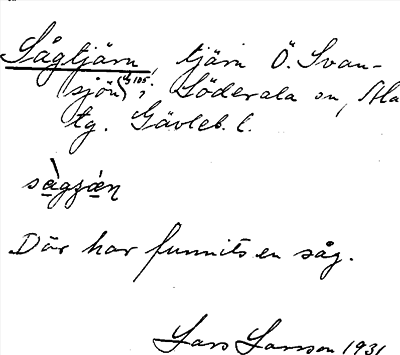 Sågtjärn, tjärn Ö. Svan-
sjön, Söderala sn, Ala
tg. Gävleb. l.
sàgjän
Där har funnits en såg.
Lars Larsson 1931